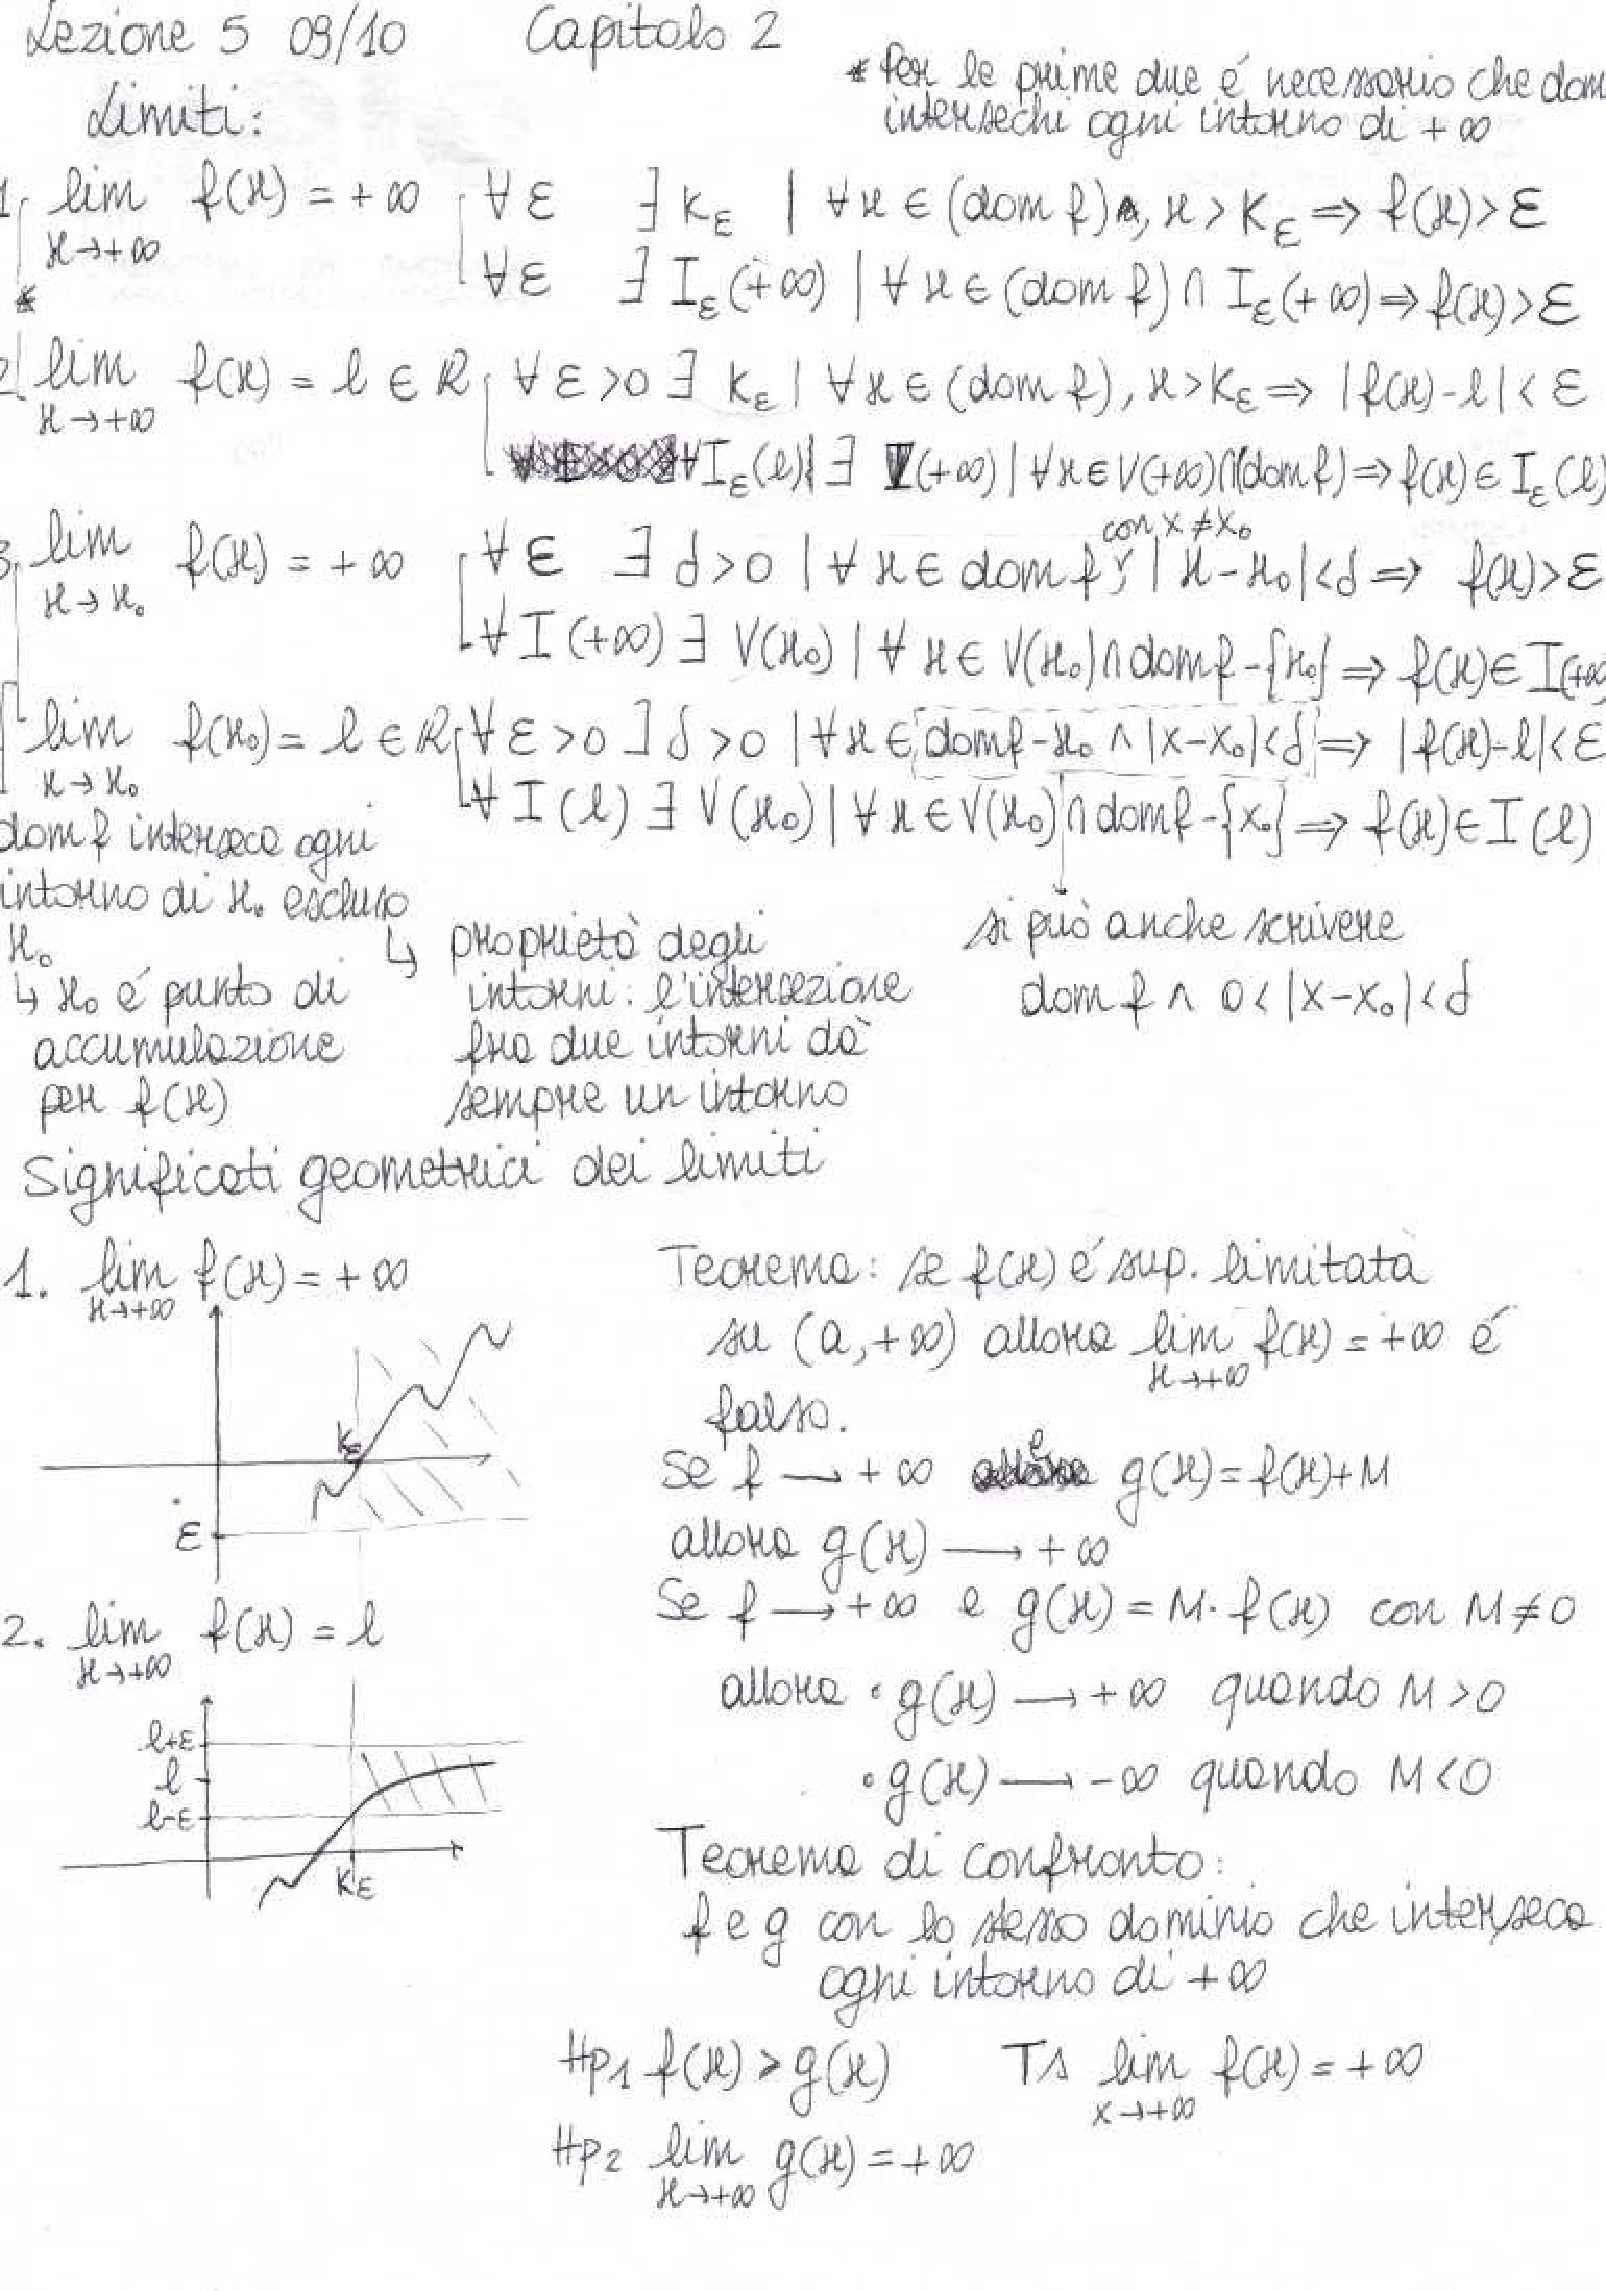 Lezione 5 09/10 Capitolo 2
* Per le prime due é necessario che dom
intersechi ogni intorno di +∞
Limiti:
1. lim x→+∞ f(x) = +∞ ∀ε ∃ kε | ∀x ∈ (dom f), x > kε ⇒ f(x) > ε
* ∀ε ∃ Iε(+∞) | ∀x ∈ (dom f) ∩ Iε(+∞) ⇒ f(x) > ε
2. lim x→+∞ f(x) = l ∈ R ∀ε>0 ∃ kε | ∀x ∈ (dom f), x > kε ⇒ |f(x)-l| < ε
∀Iε(l) ∃ V(+∞) | ∀x ∈ V(+∞) ∩ (dom f) ⇒ f(x) ∈ Iε(l)
con x ≠ x₀
3. lim x→x₀ f(x) = +∞ ∀ε ∃ δ>0 | ∀x ∈ dom f, |x-x₀| < δ ⇒ f(x) > ε
∀ I(+∞) ∃ V(x₀) | ∀x ∈ V(x₀) ∩ dom f - {x₀} ⇒ f(x) ∈ I(+∞
lim x→x₀ f(x₀) = l ∈ R ∀ε>0 ∃ δ>0 | ∀x ∈ dom f - x₀ ∧ |x-x₀| < δ ⇒ |f(x)-l| < ε
∀ I(l) ∃ V(x₀) | ∀x ∈ V(x₀) ∩ dom f - {x₀} ⇒ f(x) ∈ I(l)
dom f interseca ogni
intorno di x₀ escluso
x₀
↳ x₀ é punto di
accumulazione
per f(x)
↳ proprietà degli
intorni: l'intersezione
fra due intorni dà
sempre un intorno
si può anche scrivere
dom f ∧ 0 < |x-x₀| < δ
Significati geometrici dei limiti
1. lim x→+∞ f(x) = +∞
kε
ε
2. lim x→+∞ f(x) = l
l+ε
l
l-ε
kε
Teorema: se f(x) é sup. limitata
su (a, +∞) allora lim x→+∞ f(x) = +∞ é
falso.
Se f → +∞ e g(x) = f(x)+M
allora g(x) → +∞
Se f → +∞ e g(x) = M · f(x) con M ≠ 0
allora • g(x) → +∞ quando M > 0
• g(x) → -∞ quando M < 0
Teorema di confronto:
f e g con lo stesso dominio che interseca
ogni intorno di +∞
Hp1 f(x) > g(x) Ts lim x→+∞ f(x) = +∞
Hp2 lim x→+∞ g(x) = +∞